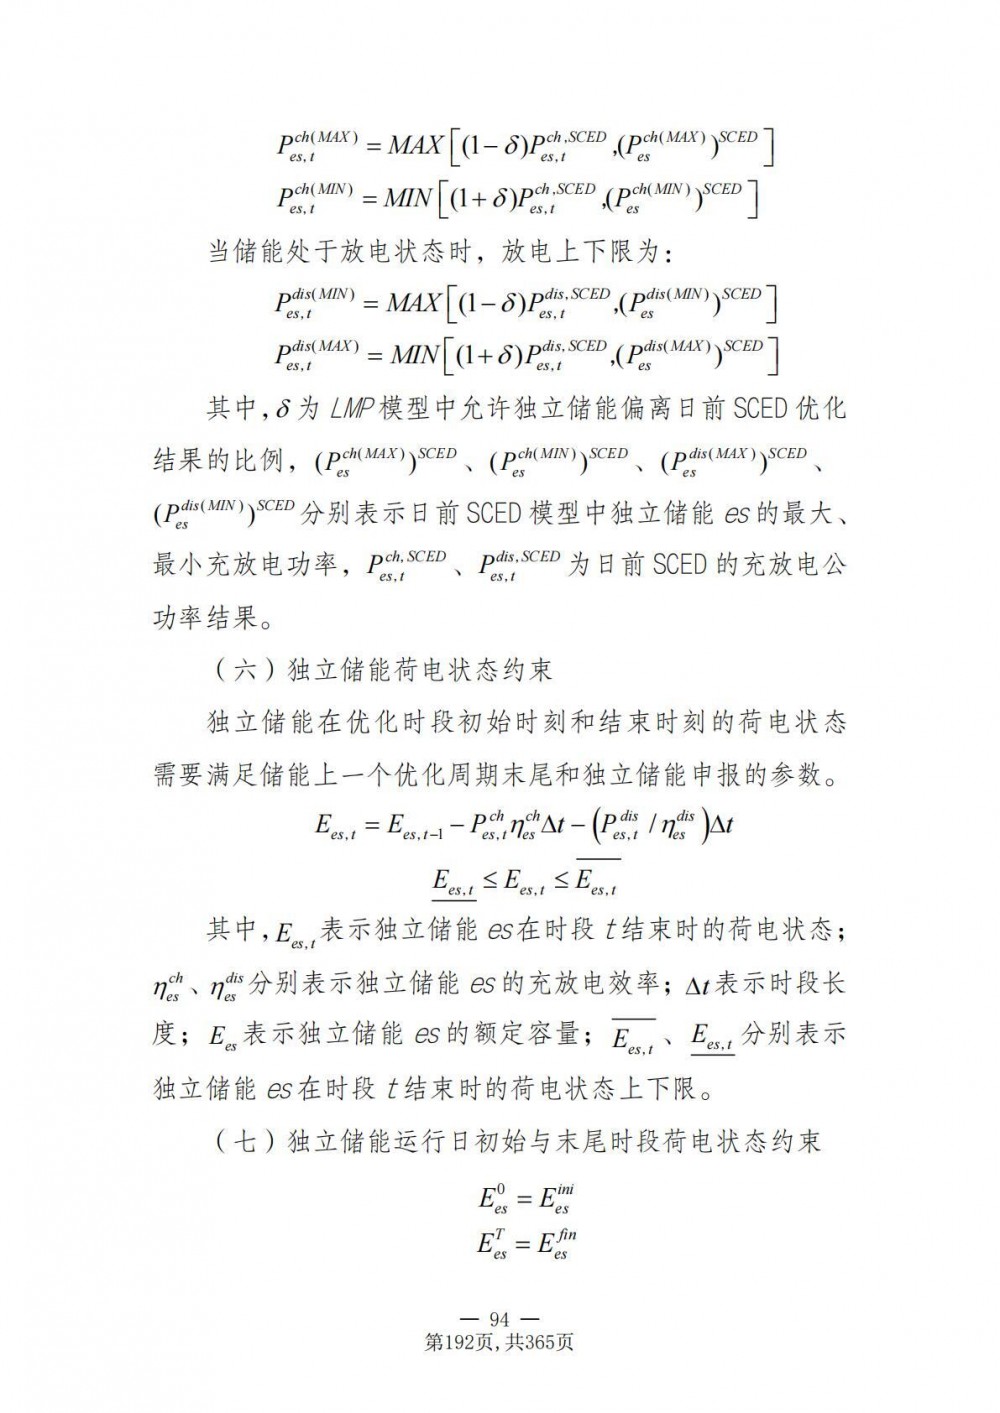 $P_{es,t}^{ch(MAX)} = MAX\left[(1-\delta)P_{es,t}^{ch,SCED},(P_{es}^{ch(MAX)})^{SCED}\right]$
$P_{es,t}^{ch(MIN)} = MIN\left[(1+\delta)P_{es,t}^{ch,SCED},(P_{es}^{ch(MIN)})^{SCED}\right]$
当储能处于放电状态时，放电上下限为：
$P_{es,t}^{dis(MIN)} = MAX\left[(1-\delta)P_{es,t}^{dis,SCED},(P_{es}^{dis(MIN)})^{SCED}\right]$
$P_{es,t}^{dis(MAX)} = MIN\left[(1+\delta)P_{es,t}^{dis,SCED},(P_{es}^{dis(MAX)})^{SCED}\right]$
其中，$\delta$ 为 LMP 模型中允许独立储能偏离日前 SCED 优化
结果的比例，$(P_{es}^{ch(MAX)})^{SCED}$、$(P_{es}^{ch(MIN)})^{SCED}$、$(P_{es}^{dis(MAX)})^{SCED}$、
$(P_{es}^{dis(MIN)})^{SCED}$ 分别表示日前 SCED 模型中独立储能 es 的最大、
最小充放电功率，$P_{es,t}^{ch,SCED}$、$P_{es,t}^{dis,SCED}$ 为日前 SCED 的充放电公
功率结果。
（六）独立储能荷电状态约束
独立储能在优化时段初始时刻和结束时刻的荷电状态
需要满足储能上一个优化周期末尾和独立储能申报的参数。
$E_{es,t} = E_{es,t-1} - P_{es,t}^{ch}\eta_{es}^{ch}\Delta t - \left(P_{es,t}^{dis} / \eta_{es}^{dis}\right)\Delta t$
$\underline{E_{es,t}} \leq E_{es,t} \leq \overline{E_{es,t}}$
其中，$E_{es,t}$ 表示独立储能 es 在时段 t 结束时的荷电状态；
$\eta_{es}^{ch}$、$\eta_{es}^{dis}$ 分别表示独立储能 es 的充放电效率；$\Delta t$ 表示时段长
度；$E_{es}$ 表示独立储能 es 的额定容量；$\overline{E_{es,t}}$、$\underline{E_{es,t}}$ 分别表示
独立储能 es 在时段 t 结束时的荷电状态上下限。
（七）独立储能运行日初始与末尾时段荷电状态约束
$E_{es}^{0} = E_{es}^{ini}$
$E_{es}^{T} = E_{es}^{fin}$
— 94 —
第192页,共365页